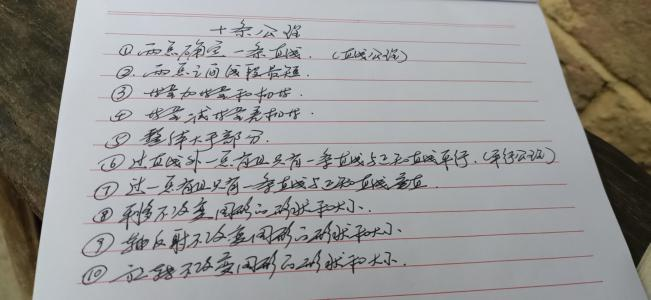 十条公理
① 两点确定一条直线. (直线公理)
② 两点之间线段最短.
③ 等量加等量和相等
④ 等量减等量差相等
⑤ 整体大于部分.
⑥ 过直线外一点有且只有一条直线与已知直线平行. (平行公理)
⑦ 过一点有且只有一条直线与已知直线垂直.
⑧ 平移不改变图形的形状和大小.
⑨ 轴反射不改变图形的形状和大小.
⑩ 旋转不改变图形的形状和大小.